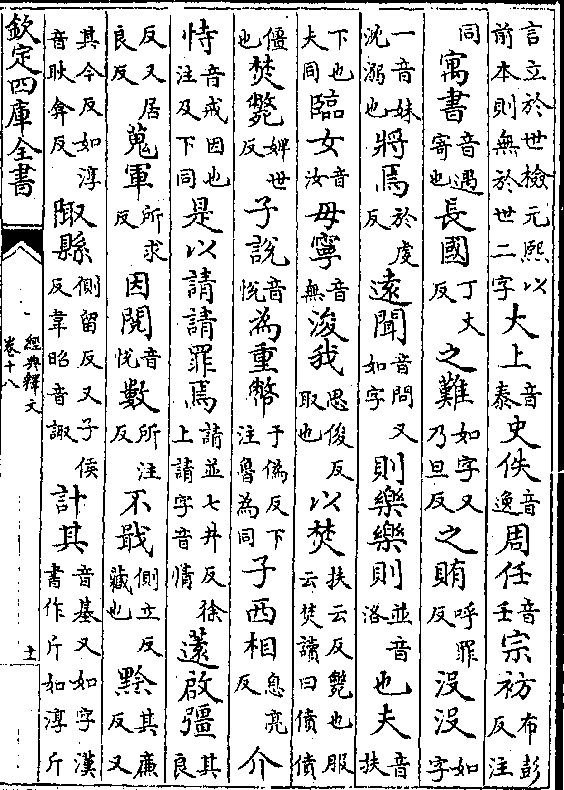 言立於世檢元熙以前本則無於世二字大上音泰史佚音逸周任音壬宗祊布彭反注
同寓書音遇寄也長國丁丈反之難如字又乃旦反之賄呼罪反没没如字
一音妹沈溺也將焉於虔反遠聞音問又如字則樂樂則並音洛也夫音扶
下也夫同臨女音汝毋寧音無浚我思俊反取也以焚扶云反斃也服云焚讀曰僨僨
僵也焚斃婢世反子說音悅為重幣于偽反下注魯為同子西相息亮反介
恃音戒因也注及下同是以請請罪焉請並七井反徐上請字音情薳啟彊其良
反又居良反蒐軍所求反因閱音悅數所注反不戢側立反藏也黔其廉反又
其今反如淳音耿弇反陬縣側留反又子侯反韋昭音諏計其音基又如字漢書作斤如淳斤
欽定四庫全書
經典釋文
卷十八
十一